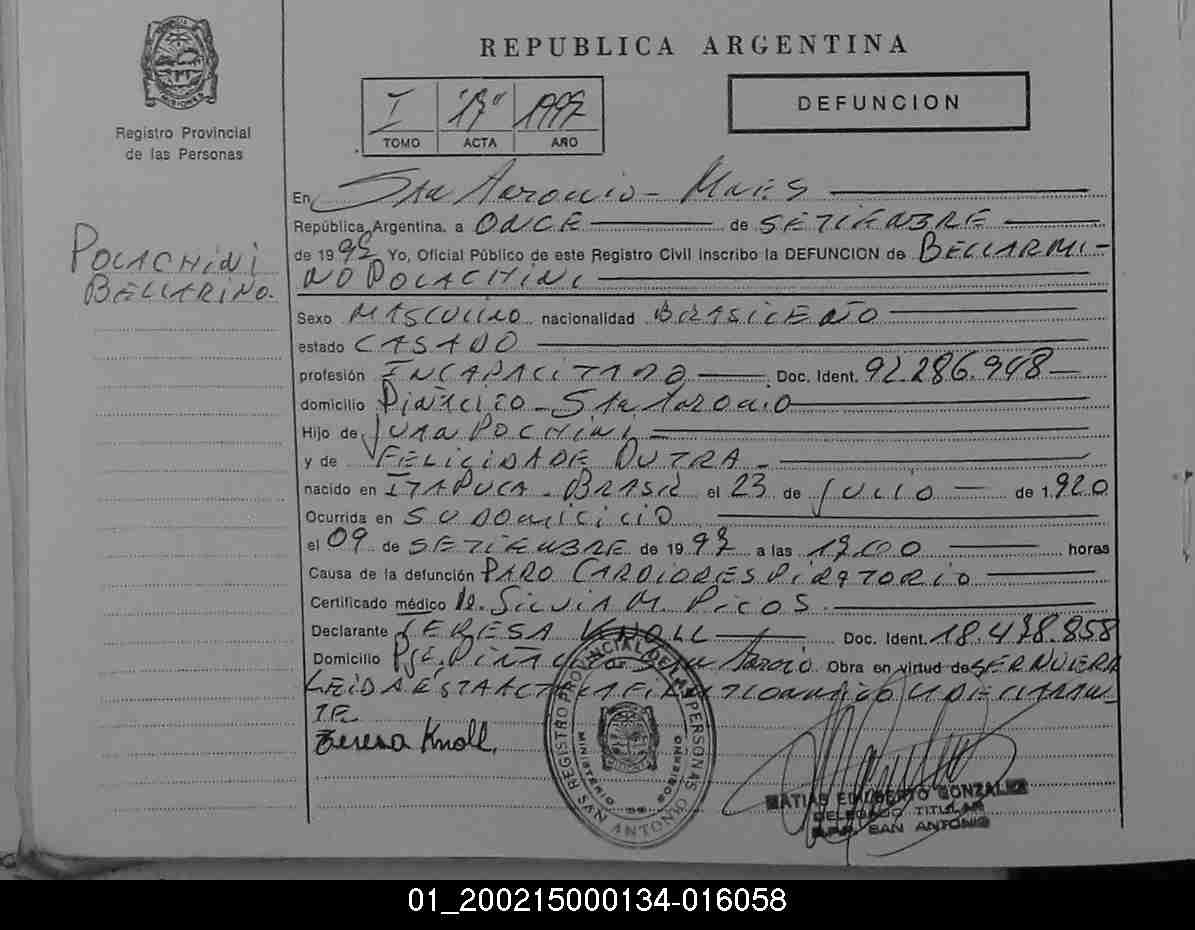 REPUBLICA ARGENTINA
MISIONES
Registro Provincial
de las Personas
I "17" 1997
TOMO ACTA AÑO
DEFUNCION
POLACHINI
BELLARINO.
En Sta Antonio - Mnes
República Argentina, a ONCE de SETIEMBRE
de 1997 Yo, Oficial Público de este Registro Civil Inscribo la DEFUNCION de BELLARMI-
NO POLACHINI
Sexo MASCULINO nacionalidad BRASILEÑO
estado CASADO
profesión INCAPACITADO Doc. Ident. 92.286.948
domicilio Piñalito - Sta Antonio
Hijo de JUAN POCHINI
y de FELICIDADE DUTRA
nacido en ITAPUCA - BRASIL el 23 de Julio de 1.920
Ocurrida en SU DOMICILIO
el 09 de SETIEMBRE de 1997 a las 17,00 horas
Causa de la defunción PARO CARDIORESPIRATORIO
Certificado médico de SILVIA M. PICOS
Declarante TERESA KNOLL Doc. Ident. 18.478.858
Domicilio Pje. Piñalito San Antonio Obra en virtud de SER NUERA
LEIDA ESTA ACTA LA FIRMA CONMIGO LA DECLARAN-
TE
Teresa Knoll
REGISTRO PROVINCIAL DE LAS PERSONAS
MINISTERIO DE GOBIERNO
SAN ANTONIO
MATIAS EDALBERTO GONZALEZ
DELEGADO TITULAR
R.P.P. SAN ANTONIO
01_200215000134-016058